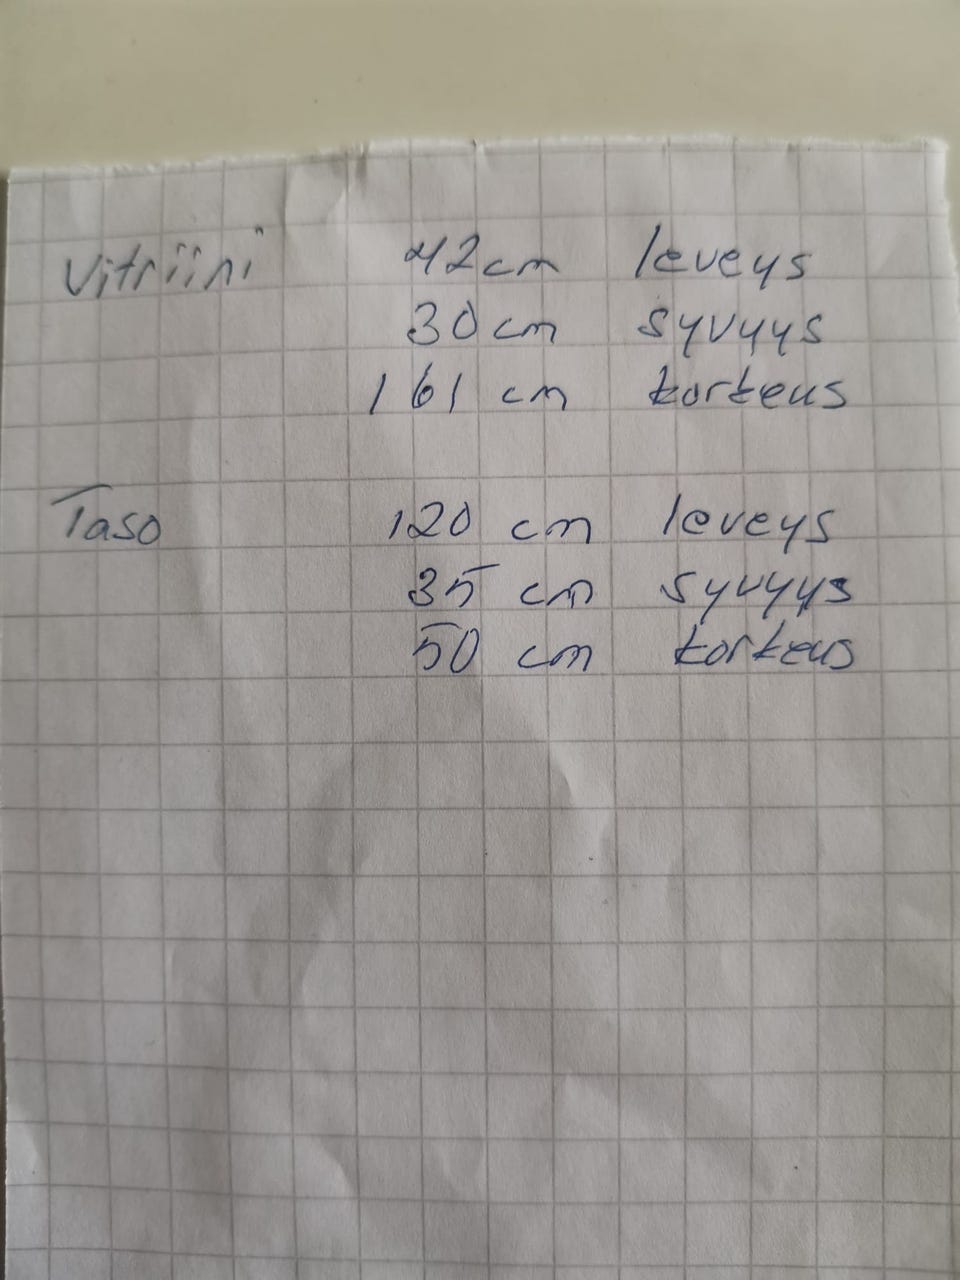 Vitriini 42cm leveys
30cm syvyys
161 cm korkeus
Taso 120 cm leveys
35 cm syvyys
50 cm korkeus